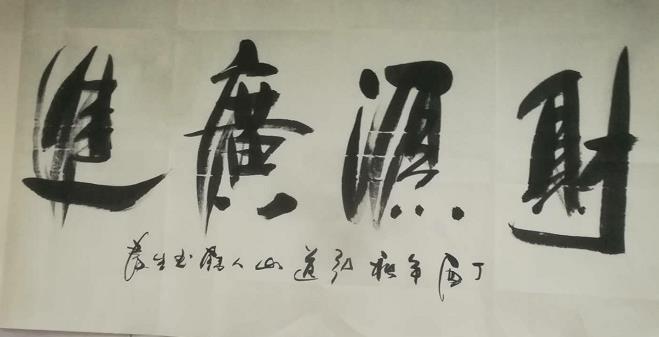 財源廣進
丁酉年秋弘道山人書生